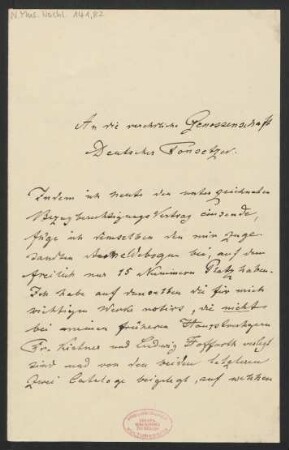 An die verehrliche Genossenschaft
Deutscher Tonsetzer.
Indem ich heute den unterzeichneten
Bezugsberechtigungs Vertrag einsende,
füge ich demselben den mir zuge
sandten bei, auf dem
freilich nur 15 Nummern Platz haben.
Ich habe auf demselben die für mich
wichtigen Werke notirt, die nicht
bei meinen früheren Hauptverlegern
Fr. Kistner und Ludwig Hoffarth verlegt
sind und von den beiden letzteren
zwei Cataloge beigelegt, auf welchen